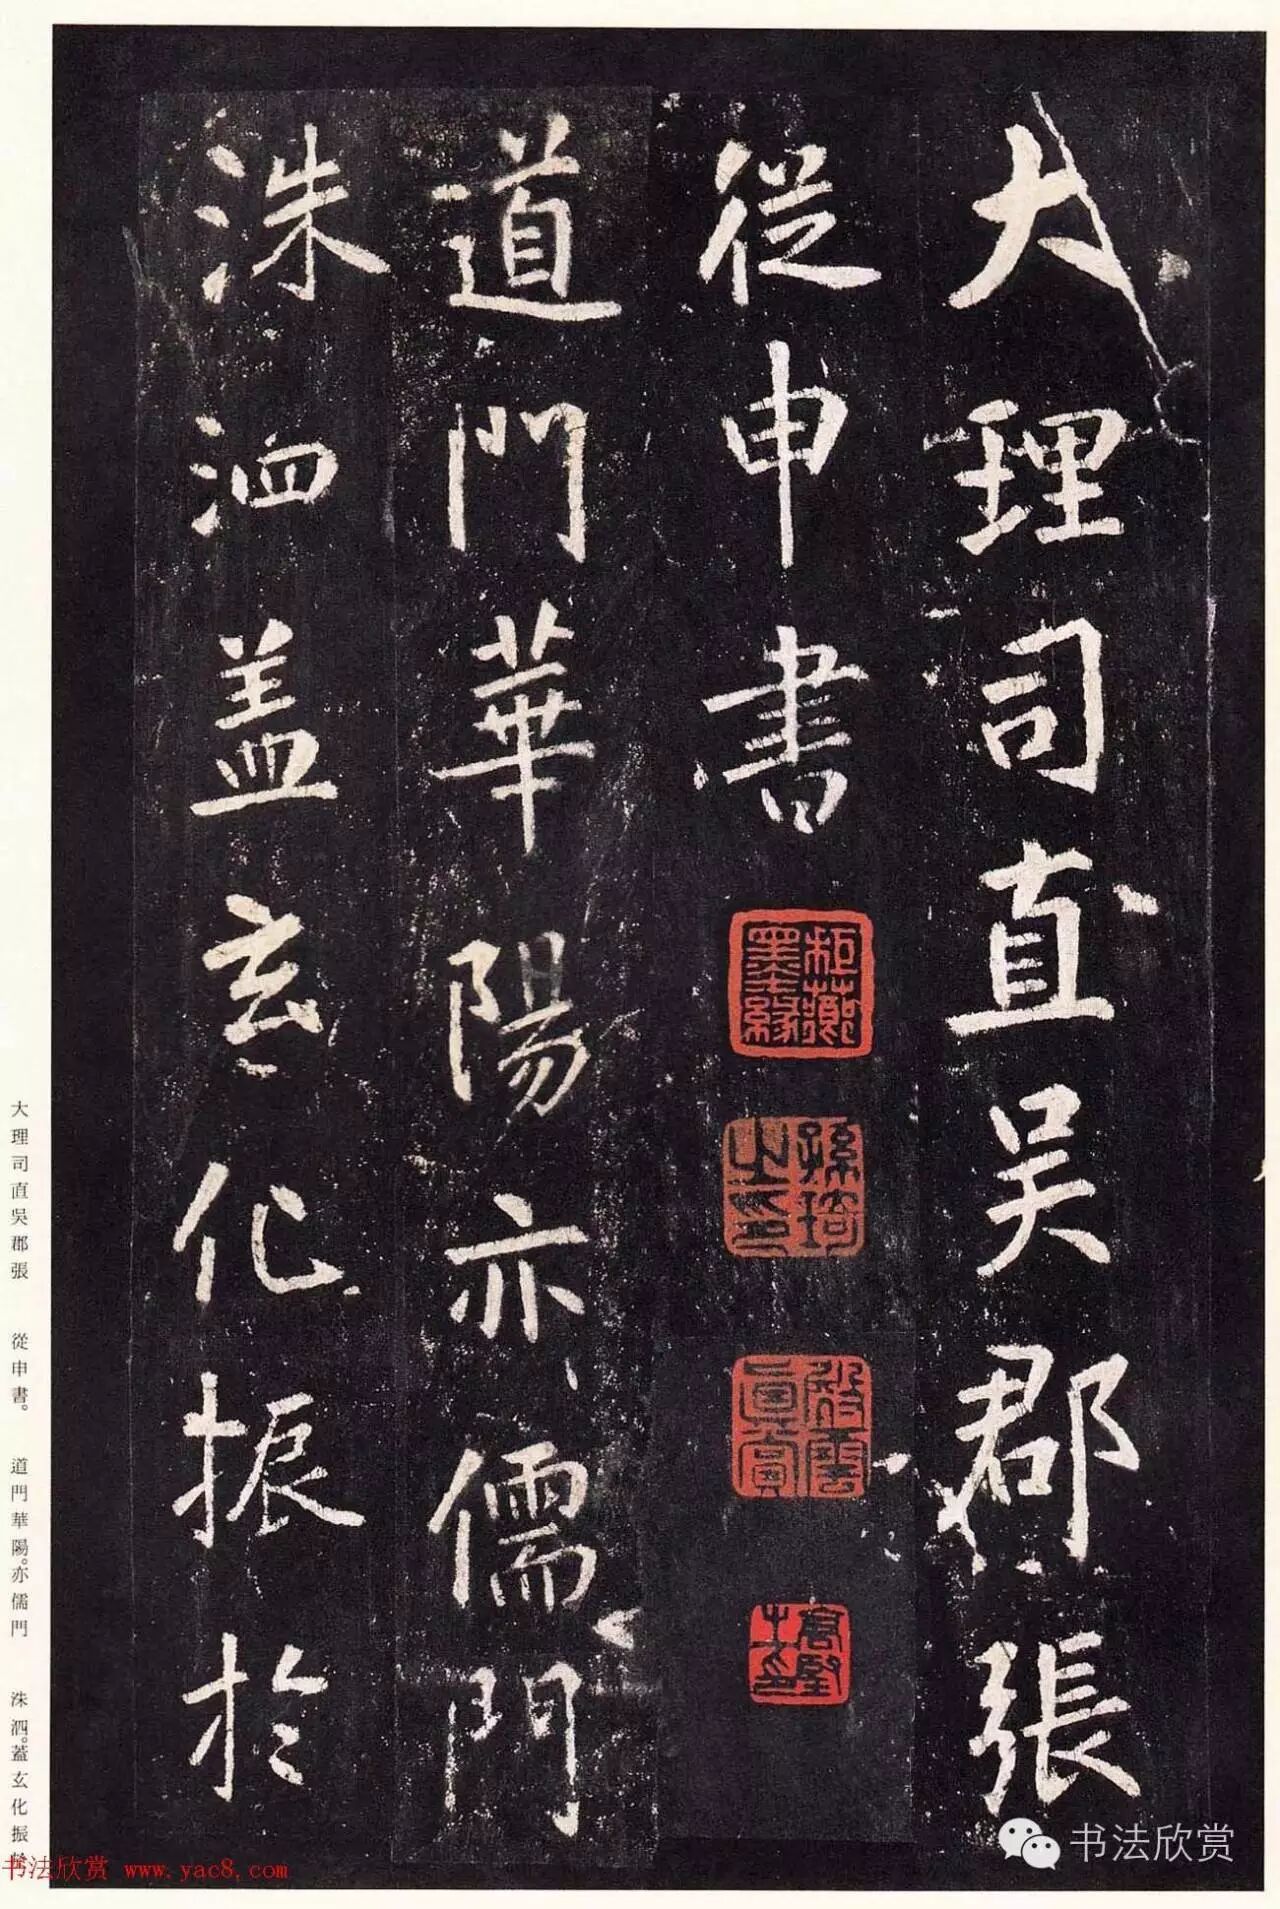 大理司直吳郡張
從申書
道門華陽亦儒門
洙泗盖玄化振於
孫琦之印
大理司直吳郡張 從申書。 道門華陽。亦儒門 洙泗。蓋玄化振於
书法欣赏
书法欣赏 www.yac8.com